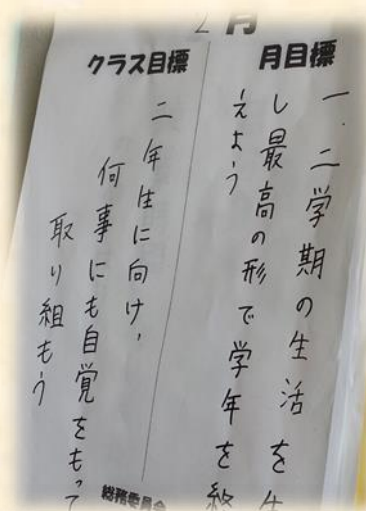 2月
月目標
一、二学期の生活を生
し最高の形で学年を終
えよう
クラス目標
二年生に向け、
何事にも自覚をもって
取り組もう
総務委員会